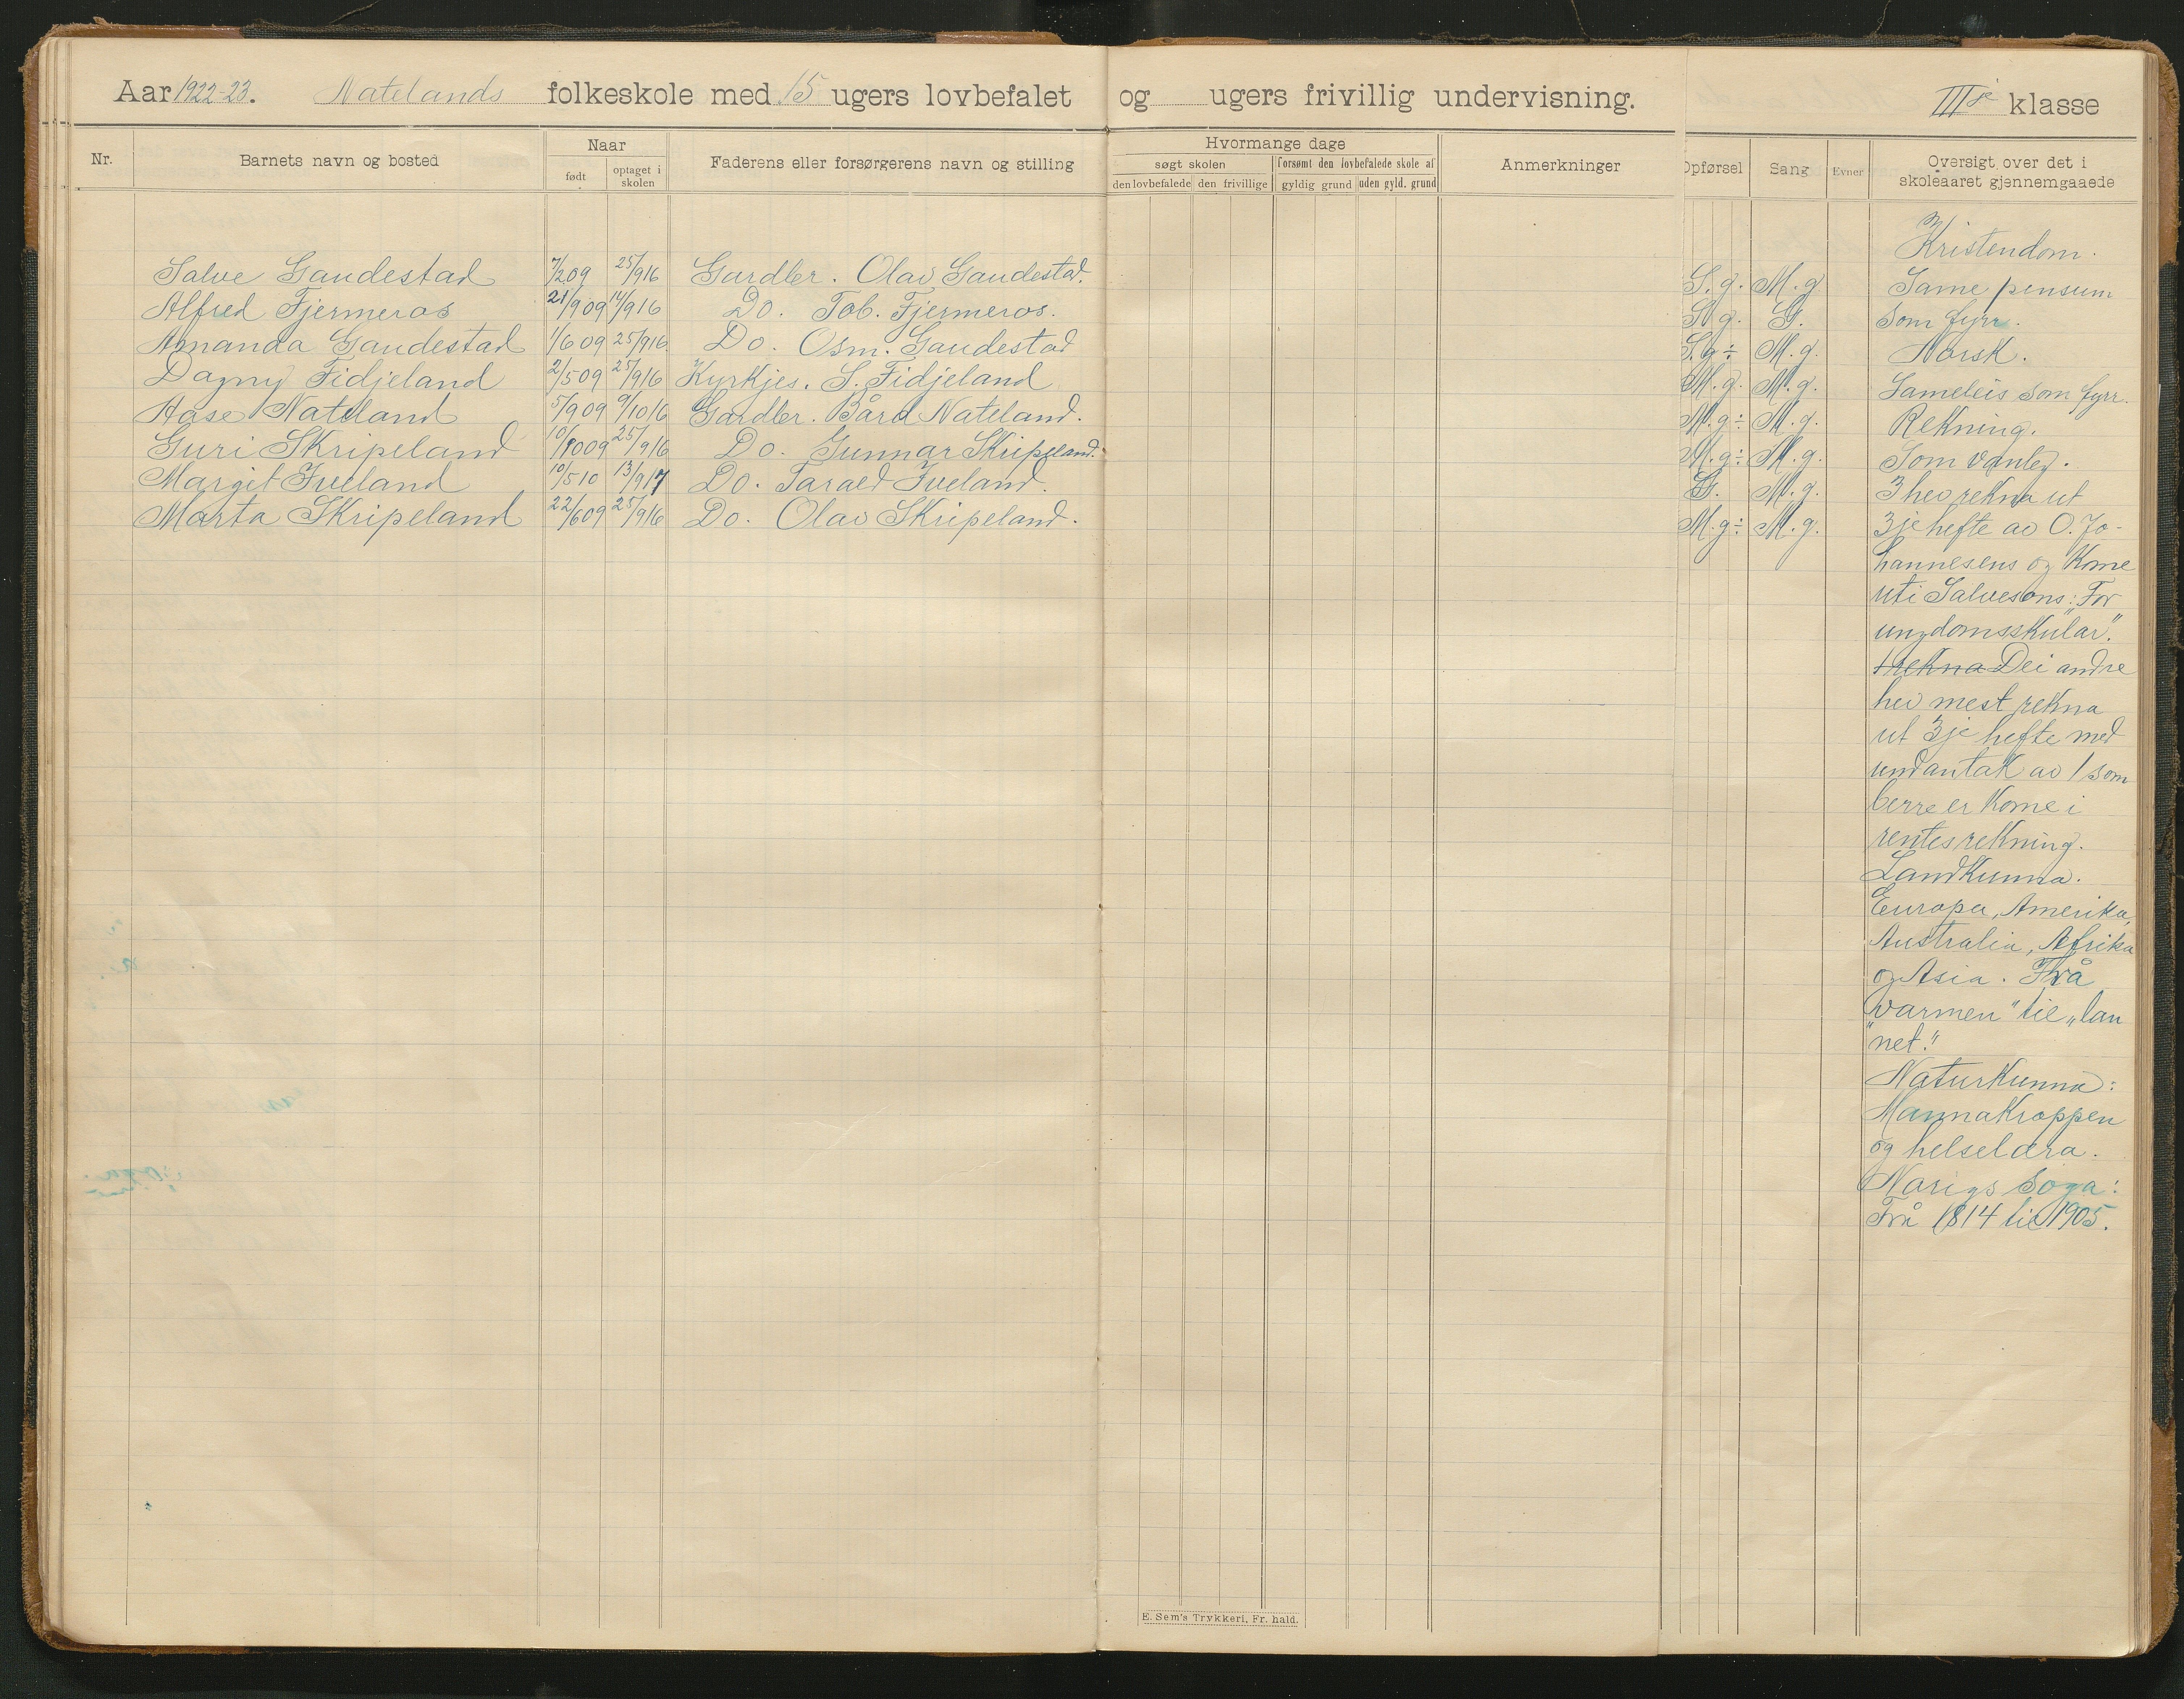 Aar 1922-23. Natelands folkeskole med 15 ugers lovbefalet og ugers frivillig undervisning. III je klasse
Nr. Barnets navn og bosted Naar født optaget i skolen Faderens eller forsørgerens navn og stilling
Hvormange dage søgt skolen den lovbefalede den frivillige forsømt den lovbefalede skole af gyldig grund uden gyld. grund Anmerkninger
Opførsel Sang Evner Oversigt over det i skoleaaret gjennemgaaede
Salve Gaudestad 7/2 09 25/9 16 Gardbr. Olav Gaudestad. S.g. M.g
Alfred Fjermeros 21/9 09 14/9 16 Do. Tob. Fjermeros. S.g. G.
Amanda Gaudestad 1/6 09 25/9 16 Do. Osm. Gaudestad S.g÷ M.g.
Dagny Fidjeland 2/5 09 25/9 16 Kyrkjes. S. Fidjeland M.g. M.g.
Aase Nateland 5/9 09 9/10 16 Gardbr. Bård Nateland. M.g÷ M.g.
Guri Skripeland 10/10 09 25/9 16 Do. Gunnar Skripeland. M.g÷ M.g.
Margit Iveland 10/5 10 13/9 17 Do. Tarald Iveland. G. M.g.
Marta Skripeland 22/6 09 25/9 16 Do. Olav Skripeland. M.g÷ M.g.
Kristendom.
Same pensum
som fyrr.
Norsk.
Sameleis som fyrr.
Rekning.
Som vanleg.
3 hev rekna ut
3je hefte av O. Jo-
hannesens og kome
uti Salvesons: "For
ungdomsskular".
rekna Dei andre
hev mest rekna
ut 3je hefte med
undantak av 1 som
berre er kome i
rentesrekning.
Landkunna.
Europa, Amerika,
Australia, Afrika
og Asia. Frå
"varmen" til "lan
net."
Naturkunna:
Mannakroppen
og helselæra.
Norigs soga:
Frå 1814 til 1905.
E. Sem's Trykkeri, Fr. hald.